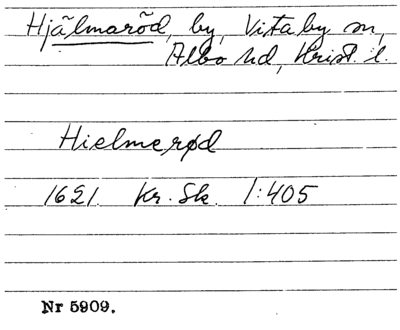 Hjälmaröd, by, Vitaby sn,
Albo hd, Krist. l.
Hielmerød
1621. Kr. Sk. 1:405
Nr 5909.